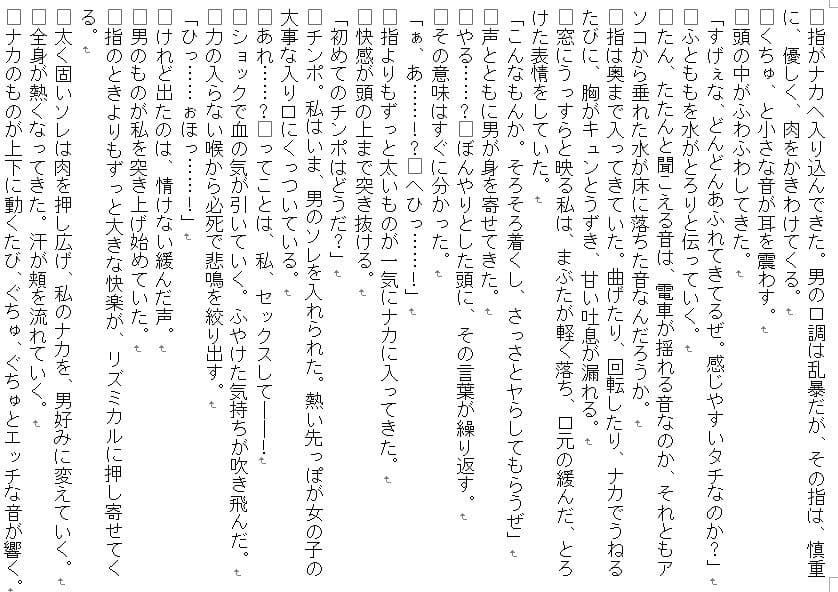 □指がナカへ入り込んできた。男の口調は乱暴だが、その指は、慎重
に、優しく、肉をかきわけてくる。
□くちゅ、と小さな音が耳を震わす。
□頭の中がふわふわしてきた。
「すげぇな、どんどんあふれてきてるぜ。感じやすいタチなのか?」
□ふとももを水がとろりと伝っていく。
□たん、たたんと聞こえる音は、電車が揺れる音なのか、それともア
ソコから垂れた水が床に落ちた音なんだろうか。
□指は奥まで入ってきていた。曲げたり、回転したり、ナカでうねる
たびに、胸がキュンとうずき、甘い吐息が漏れる。
□窓にうっすらと映る私は、まぶたが軽く落ち、口元の緩んだ、とろ
けた表情をしていた。
「こんなもんか。そろそろ着くし、さっさとヤらしてもらうぜ」
□声とともに男が身を寄せてきた。
□やる……?□ぼんやりとした頭に、その言葉が繰り返す。
□その意味はすぐに分かった。
「ぁ、あ……!?□へひっ……!」
□指よりもずっと太いものが一気にナカに入ってきた。
□快感が頭の上まで突き抜ける。
「初めてのチンポはどうだ?」
□チンポ。私はいま、男のソレを入れられた。熱い先っぽが女の子の
大事な入り口にくっついている。
□あれ……?□ってことは、私、セックスして――!
□ショックで血の気が引いていく。ふやけた気持ちが吹き飛んだ。
□力の入らない喉から必死で悲鳴を絞り出す。
「ひっ……ぉほっ……!」
□けれど出たのは、情けない緩んだ声。
□男のものが私を突き上げ始めていた。
□指のときよりもずっと大きな快楽が、リズミカルに押し寄せてく
る。
□太く固いソレは肉を押し広げ、私のナカを、男好みに変えていく。
□全身が熱くなってきた。汗が頬を流れていく。
□ナカのものが上下に動くたび、ぐちゅ、ぐちゅとエッチな音が響く。